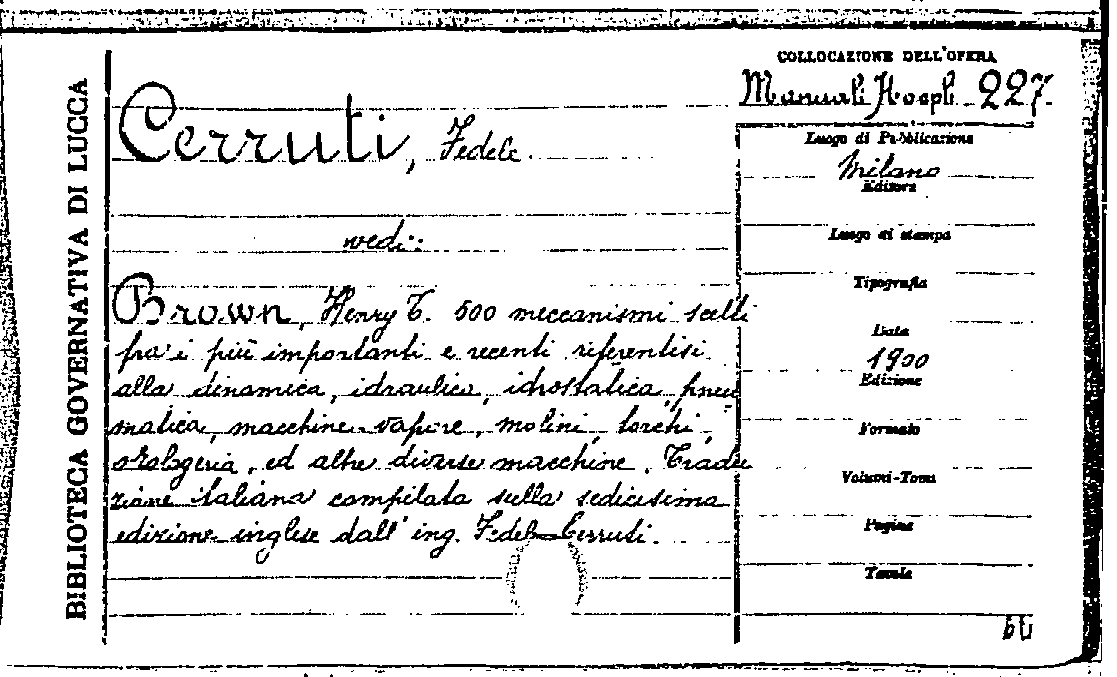 BIBLIOTECA GOVERNATIVA DI LUCCA
COLLOCAZIONE DELL'OPERA
Manuali Hoepli 227.
Cerruti, Fedele.
vedi:
Brown, Henry T. 500 meccanismi scelti
fra i più importanti e recenti riferentisi
alla dinamica, idraulica, idrostatica, pneu
matica, macchine vapore, molini, torchi,
orologeria, ed altre diverse macchine. Tradu
zione italiana compilata sulla sedicesima
edizione inglese dall'ing. Fedele Cerruti.
Luogo di Pubblicazione
Milano
Editore
Luogo di stampa
Tipografia
Data
1900
Edizione
Formato
Volumi-Tomi
Pagine
Tavole